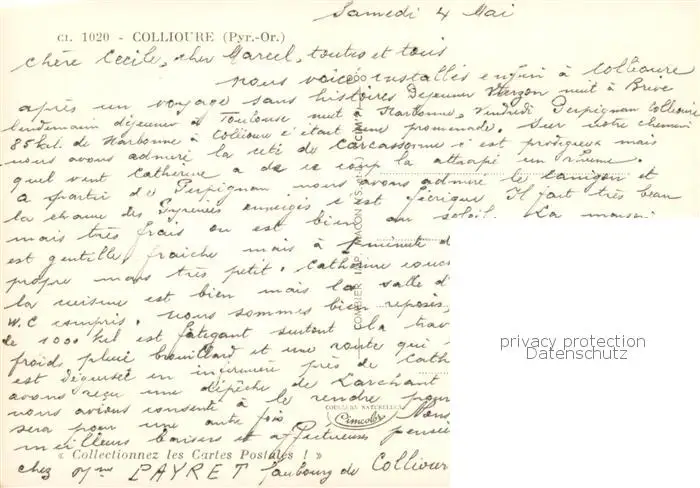 Samedi 4 Mai
Cl. 1020 - COLLIOURE (Pyr.-Or.)
Chère Cécile, cher Marcel, toutes et tous
nous voici installés enfin à Collioure
après un voyage sans histoires Dejeuner Vierzon nuit à Brive
lendemain déjeuner à Toulouse nuit à Narbonne, Vendredi Perpignan Collioure
85 kil. de Narbonne à Collioure c'était une promenade. Sur notre chemin
nous avons admiré la cité de Carcassonne c'est prodigieux mais
quel vent Catherine a de ce coup là attrapé un rhume.
A partir de Perpignan, nous avons admiré le Canigou et
la chaine des Pyrénées enneigés c'est féerique Il fait très beau
mais très frais on est bien au soleil. La maison
est gentille, fraiche mais à 1 minute d
propre mais très petit. Catherine couc
la cuisine est bien mais la salle d'
W.C compris. Nous sommes bien reposés,
de 1000 kil est fatigant surtout la trav
froid, pluie brouillard et une route qui
est déguisé en infirmière près de Cath
avons reçu une dépêche de Larchant
nous avions consenti à le rendre pour
sera pour une autre fois Nous
meilleurs baisers et affectueuses pensé
« Collectionnez les Cartes Postales ! »
chez Mme PAYRET faubourg de Colliour
COMBIER IMP. MACON
COULEURS NATURELLES
Cimcolor
privacy protection
Datenschutz